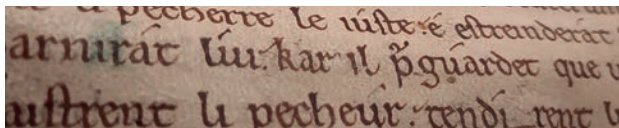 li pecherre le iuste: e estreinderat
arnirat lui. kar il p̃guardet que u
ustrent li pecheur: tendi rent l